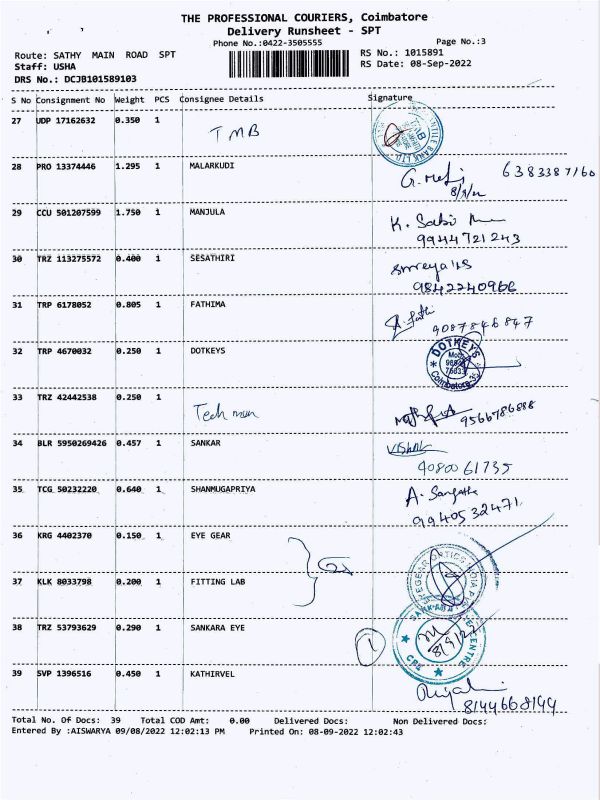 THE PROFESSIONAL COURIERS, Coimbatore
Delivery Runsheet - SPT
Phone No.:0422-3505555 Page No.:3
Route: SATHY MAIN ROAD SPT RS No.: 1015891
Staff: USHA RS Date: 08-Sep-2022
DRS No.: DCJB101589103
S No Consignment No Weight PCS Consignee Details Signature
27 UDP 17162632 0.350 1 TMB
28 PRO 13374446 1.295 1 MALARKUDI
6383387160
29 CCU 501207599 1.750 1 MANJULA
9944721243
30 TRZ 113275572 0.400 1 SESATHIRI
9842240966
31 TRP 6178052 0.805 1 FATHIMA
9087846847
32 TRP 4670032 0.250 1 DOTKEYS DOTKEYS
Coimbatore
33 TRZ 42442538 0.250 1 Tech
9566786888
34 BLR 5950269426 0.457 1 SANKAR
9080061735
35 TCG 50232220 0.640 1 SHANMUGAPRIYA A. Sangeetha
9940532471
36 KRG 4402370 0.150 1 EYE GEAR
37 KLK 8033798 0.200 1 FITTING LAB
38 TRZ 53793629 0.290 1 SANKARA EYE 1 8/9/22
39 SVP 1396516 0.450 1 KATHIRVEL
8144668144
Total No. Of Docs: 39 Total COD Amt: 0.00 Delivered Docs: Non Delivered Docs:
Entered By :AISWARYA 09/08/2022 12:02:13 PM Printed On: 08-09-2022 12:02:43